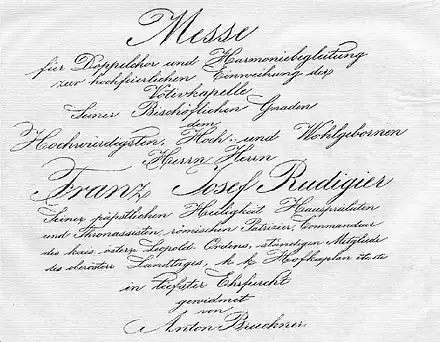 Messe
für Doppelchor und Harmoniebegleitung
zur hochfeierlichen Einweihung der
Votivkapelle
Seiner Bischöflichen Gnaden
dem
Hochwürdigsten, Hoch- und Wohlgebornen
Herrn Herrn
Franz Josef Rudigier
Seiner päpstlichen Heiligkeit Hausprälaten
und Thronassisten, römischen Patrizier, Commandeur
des kais. österr. Leopold Ordens, ständigen Mitgliede
des oberösterr Landtages, k. k. Hofkaplan etc etc
in tiefster Ehrfurcht
gewidmet
von
Anton Bruckner.